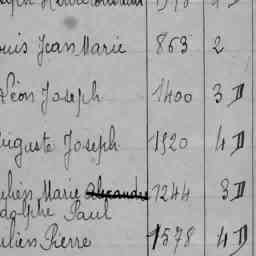 ouis Jean Marie 863 2
Léon Joseph 1400 3 D
uguste Joseph 1920 4 D
ulien Marie Alexandre 1244 3 D
dolphe Paul
ulien Pierre 1578 4 D